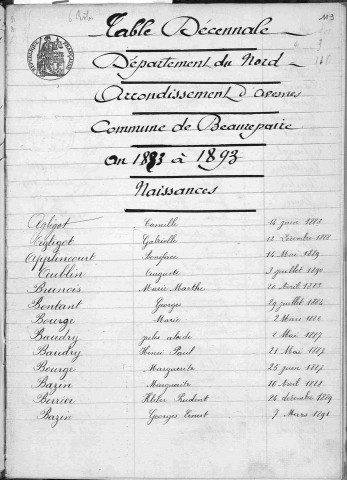 113
Table Décennale
Département du Nord
Arrondissement d'Avesnes
Commune de Beaurepaire
an 1883 à 1893
Naissances
Agligot Camille 14 juin 1888
Agligot Gabrielle 12 Décembre 1888
Applincourt Boniface 14 Mai 1889
Aublin Auguste 3 juillet 1890
Brunois Marie Marthe 20 Avril 1883
Bontant Georges 29 juillet 1884
Bourge Marie 2 Mars 1886
Baudry jules 1 Mai 1887
Baudry Henri Paul 21 Mai 1887
Bourge Marguerite 25 juin 1887
Bazin Marguerite 16 Avril 1888
Berrier Kléber Prudent 24 décembre 1889
Bazin Georges Ernest 7 Mars 1891